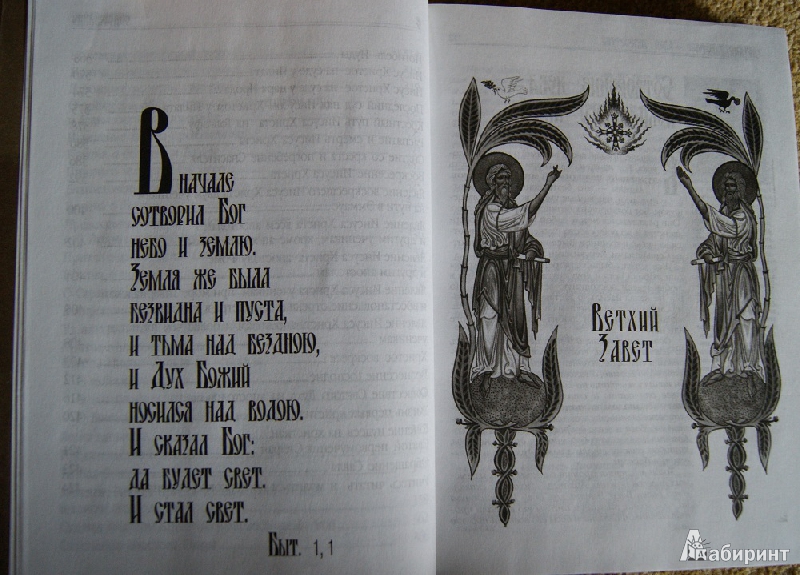 В начале
сотворил Бог
небо и землю.
Земля же была
безвидна и пуста,
и тьма над бездною,
и Дух Божий
носился над водою.
И сказал Бог:
да будет свет.
И стал свет.
Быт. 1,1
Ветхий
Завет
Лабиринт